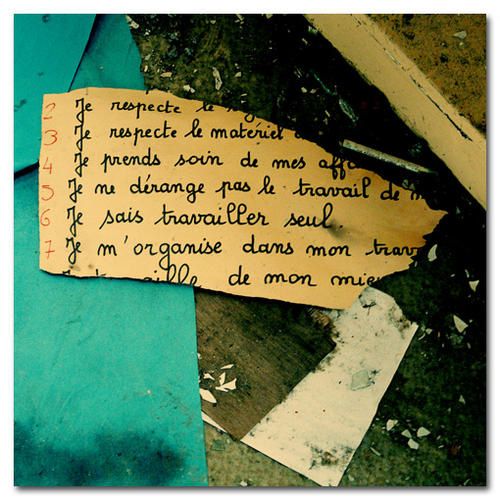 2 Je respecte le
3 Je respecte le matériel
4 Je prends soin de mes affa
5 Je ne dérange pas le travail de m
6 Je sais travailler seul
7 Je m'organise dans mon trav
de mon mieu